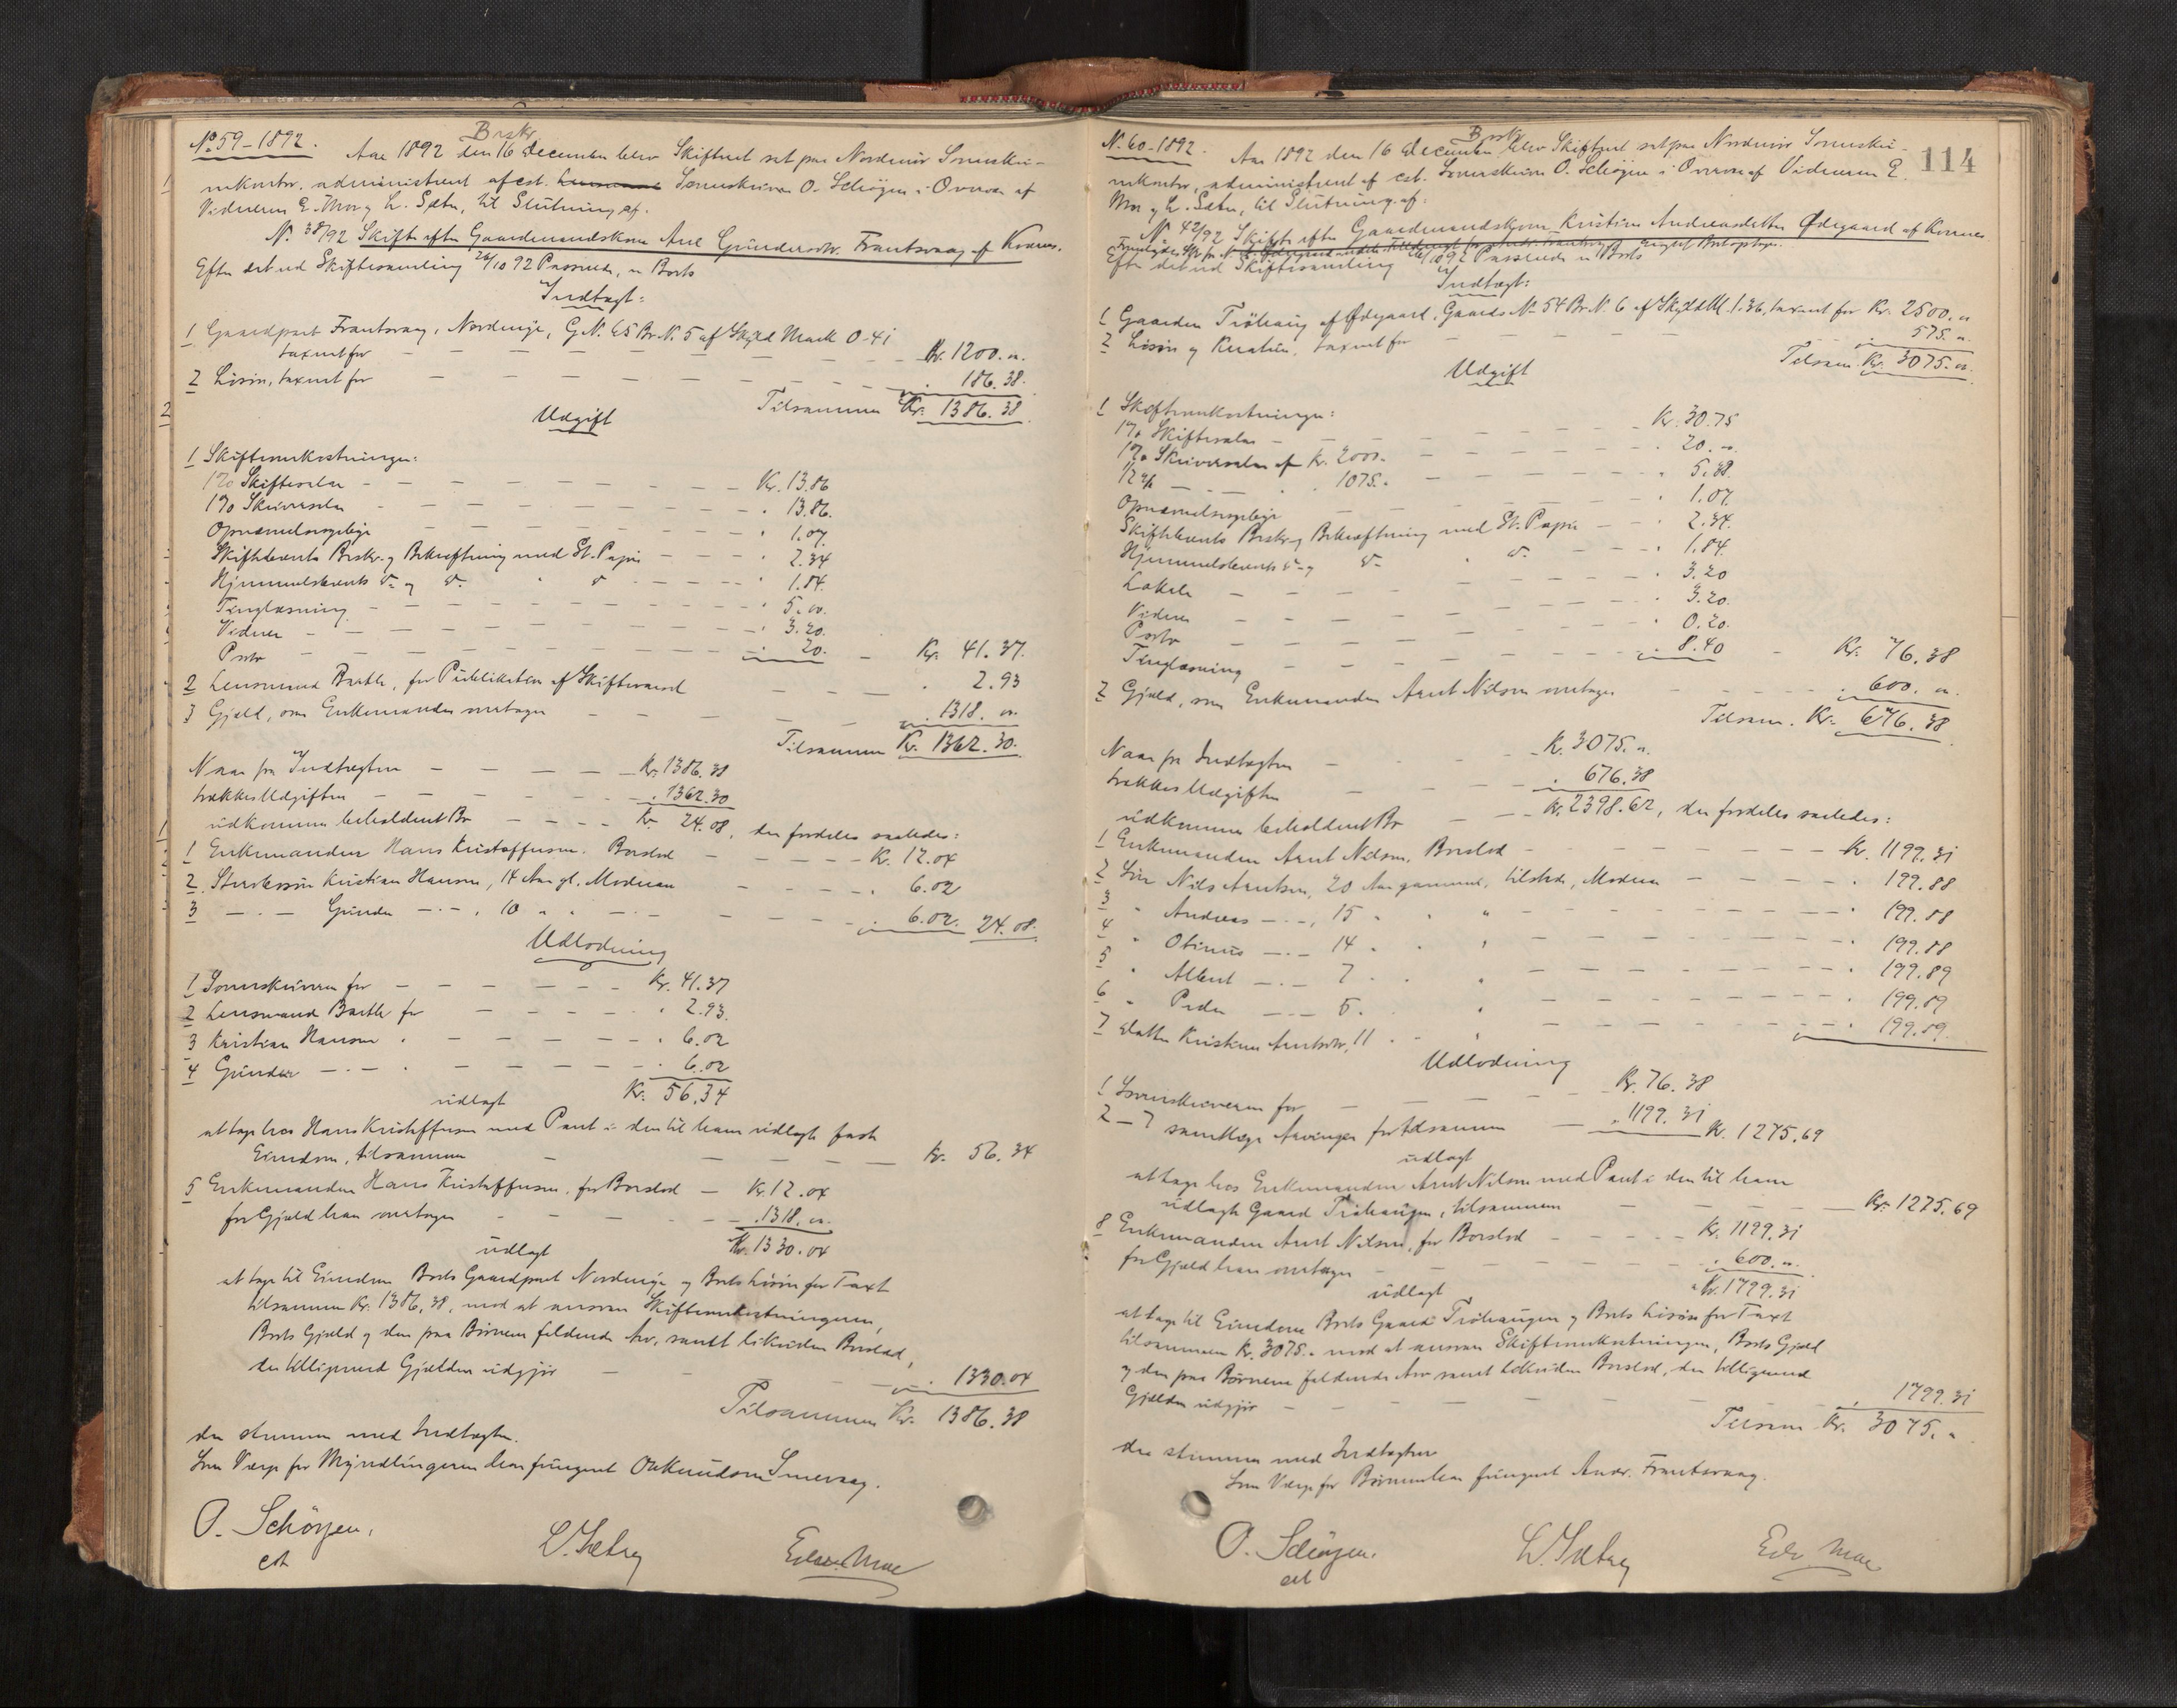 No 59 – 1892.
Brskr
Aar 1892 den 16 December blev Skifteret sat paa Nordmør Sorenskri-
verkontor, administreret af cst. Sorenskriver O. Schöyen i Overvær af
Vidnerne E. Moe og L. Sæter, til Slutning af:
No 38/92 Skifte efter Gaardmandskone Ane Gundersdtr. Frantsvaag af Kvernes.
Efter det ved Skiftesamling 26/10 92 Passerede, er Boets
Indtægt:
1 Gaardpart Frantsvaag, Nordenje, G.N. 65 Br.N. 5 af Skyld Mark 0-41
taxeret for — — — — Kr. 1200. "
2 Løsøre, taxeret for — — — — " 186.38.
Tilsammen Kr. 1386.38.
Udgift
1 Skifteomkostninger:
1% Skiftesalær — — — Kr. 13.86
1% Skriversalær — — — " 13.86.
Opnævnelsesgebyr — — — " 1.07.
Skiftebrevets Beskr. og Bekræftning med St. Papir — — — " 2.34
Hjemmelsbrevets do og do " do — — — " 1.84.
Tinglæsning — — — " 5. "
Vidner — — — " 3.20.
Porto — — — " 20. — Kr. 41.37.
2 Lensmand Barth, for Publikation af Skiftevarsel — — — " 2.93
3 Gjæld, som Enkemanden overtager — — — " 1318. "
Tilsammen Kr. 1362.30.
Naar fra Indtægten — — — Kr. 1386.38
trækkes Udgiften — — — " 1362.30
udkommer beholdent Bo — — — Kr. 24.08, der fordeles saaledes:
1 Enkemanden Hans Kristoffersen, Boeslod — — — Kr. 12.04
2 Kristian Hansen, 14 Aar gl. Modrearv — — — " 6.02
3 — " — Gunder — " —, 10 " " — " — — — — " 6.02. 24.08.
Udlodning
1 Sorenskriveren for — — — Kr. 41.37
2 Lensmand Barth for — — — " 2.93.
3 Kristian Hansen " — — — " 6.02
4 Gunder — " — " — — — " 6.02
Kr. 56.34
udlagt
at tage hos Hans Kristoffersen med Pant i den til ham udlagte faste
Eiendom, tilsammen — — — Kr. 56.34
5 Enkemanden Hans Kristoffersen, for Boeslod — Kr. 12.04
for Gjæld han overtager — — — " 1318. "
Kr. 1330.04
udlagt
at tage til Eiendom Boets Gaardpart Nordenje og Boets Løsøre for Taxt
tilsammen Kr. 1386.38, mod at ansvare Skifteomkostningerne,
Boets Gjæld og den paa Børnene faldende Arv, samt likvidere Boeslod,
der tilligemed Gjælden udgjør — — — " 1330.04
Tilsammen Kr. 1386.38
der stemmer med Indtægten.
Som Værge for Myndlingerne har fungeret O. Knudsen Smevaag.
O. Schöyen,
cst
L. Sæter
Edv. Moe
114
N. 60 – 1892.
Brskr
Aar 1892 den 16 December blev Skifteret sat paa Nordmør Sorenskri-
verkontor, administreret af cst. Sorenskriver O. Schöyen i Overvær af Vidnerne E.
Moe og L. Sæter, til Slutning af:
No 42/92 Skifte efter Gaardmandskone Kristine Andreasdatter Ødegaard af Kvernes
Efter det ved Skiftesamling 26/10 92 Passerede er Boets
Indtægt:
1 Gaarden Tröhaug af Ødegaard, Gaards No 54 Br.N. 6 af Skyld M. 1.36, taxeret for Kr. 2500. "
2 Løsøre og Kreaturer, taxeret for — — — " 575. "
Tilsam. Kr. 3075. "
Udgift
1 Skifteomkostninger:
1% Skiftesalær — — — Kr. 30.75
1% Skriversalær af Kr. 2000. — — — " 20. "
1/2 % — " — " 1075. " — — — " 5.38.
Opnævnelsesgebyr — — — " 1.07.
Skiftebrevets Beskr. og Bekræftning med St. Papir — — — " 2.34.
Hjemmelsbrevets do og do " do — — — " 1.84.
Lokale — — — " 3.20
Vidner — — — " 3.20.
Porto — — — " 0.20.
Tinglæsning — — — " 8.40 — Kr. 76.38
2 Gjæld, som Enkemanden Arnt Nilsen overtager — — — " 600. "
Tilsam. Kr. 676.38
Naar fra Indtægten — — — Kr. 3075. "
trækkes Udgiften — — — " 676.38
udkommer beholdent Bo — — — Kr. 2398.62, der fordeles saaledes:
1 Enkemanden Arnt Nilsen, Boeslod — — — Kr. 1199.31
2 Søn Nils Arntsen, 20 Aar gammel, tilstede, Modrearv — — — " 199.88
3 " Andreas — " —, 15 " " " — — — " 199.88
4 " Otinius — " — 14 " " " — — — " 199.88
5 " Albert — " — 7 " " — — — " 199.89
6 " Peder — " — 5 " " — — — " 199.89
7 Datter Kristine Arntsdtr, 11 " " — — — " 199.89.
Udlodning
1 Sorenskriveren for — — — Kr. 76.38
2–7 samtlige Arvinger for tilsammen — " 1199.31 Kr. 1275.69
udlagt
at tage hos Enkemanden Arnt Nilsen med Pant i den til ham
udlagte Gaard Tröhaugen, tilsammen — — — Kr. 1275.69
8 Enkemanden Arnt Nilsen, for Boeslod — — — Kr. 1199.31
for Gjæld han overtager — — — " 600. "
Kr. 1799.31
udlagt
at tage til Eiendom Boets Gaard Tröhaugen og Boets Løsøre for Taxt
tilsammen Kr. 3075. " mod at ansvare Skifteomkostningerne, Boets Gjæld
og den paa Børnene faldende Arv samt likvidere Boeslod, der tilligemed
Gjælden udgjør — — — " 1799.31
Tilsam. Kr. 3075. "
der stemmer med Indtægten
Som Værge for Børnene har fungeret Andr. Frantsvaag.
O. Schöyen.
cst
L. Sæter
Edv. Moe